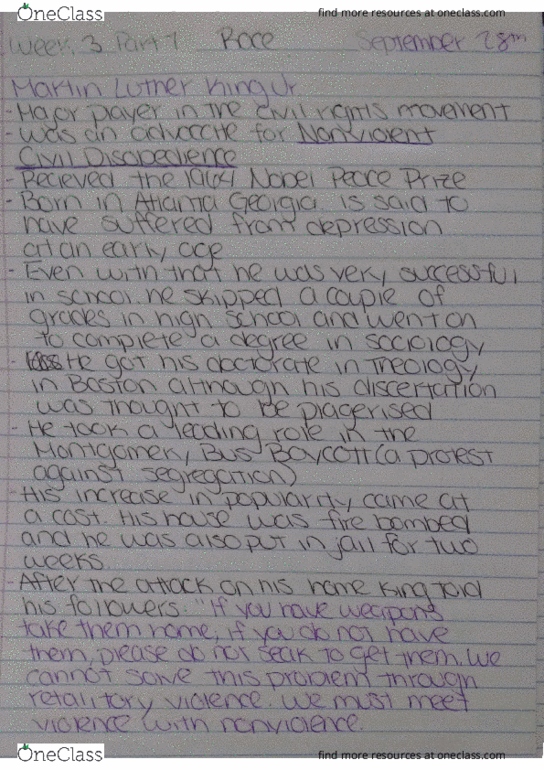 OneClass
find more resources at oneclass.com
Week 3 Part 1 Race September 28th
Martin Luther King Jr
- Major player in the civil rights movement
- Was an advocate for Nonviolent
Civil Disobedience
- Recieved the 1964 Nobel Peace Prize
- Born in Atlanta Georgia is said to
have suffered from depression
at an early age
- Even with that he was very successful
in school. he skipped a couple of
grades in high school and went on
to complete a degree in sociology
- He got his doctorate in Theology
in Boston although his discertation
was thought to be plagerised
- He took a leading role in the
Montgomery Bus Boycott (a protest
against segregation)
- His increase in popularity came at
a cost. His house was fire bombed
and he was also put in jail for two
weeks.
- After the attack on his home King told
his followers. "If you have weapons
take them home, if you do not have
them, please do not seak to get them. We
cannot solve this problem through
retalitory violence. We must meet
violence with nonviolence.
OneClass
find more resources at oneclass.com